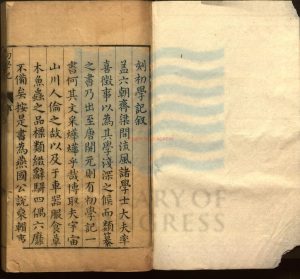 刻初學記叙
盖六朝齊梁間流風諸學士大夫率
喜徵事以為其學淺深之候而類纂
之書乃出至唐開元則有初學記一
書何其文采纚纚乎哉博取夫宇宙
山川人倫之故以及于車器服食草
木魚蟲之品標類綴辭騈四偶六靡
不備矣按是書為燕國公說
ARY OF
GRESS